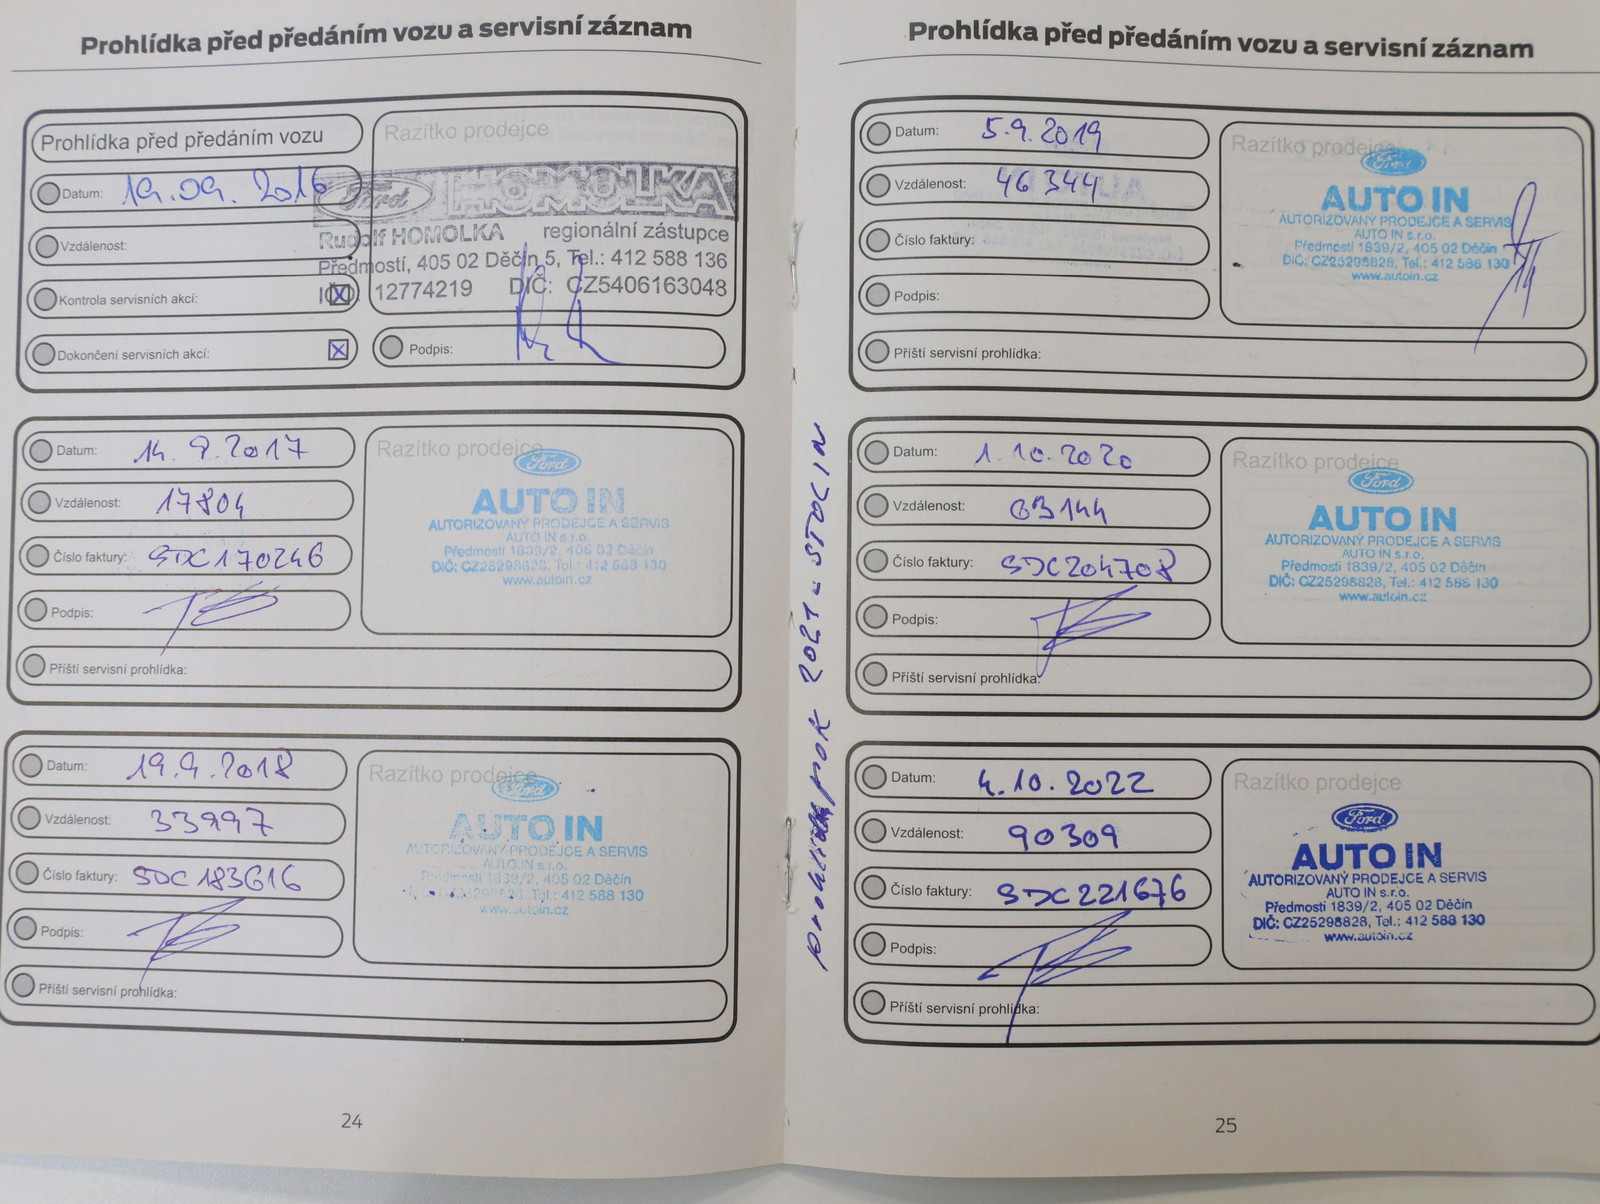 Prohlídka před předáním vozu a servisní záznam
Prohlídka před předáním vozu
Datum: 19.09.2016
Vzdálenost:
Kontrola servisních akcí: X
Dokončení servisních akcí: X
Razítko prodejce
Ford HOMOLKA
Rudolf HOMOLKA regionální zástupce
Předmostí, 405 02 Děčín 5, Tel.: 412 588 136
IČO: 12774219 DIČ: CZ5406163048
Podpis:
Datum: 14.9.2017
Vzdálenost: 17804
Číslo faktury: SDC170246
Podpis:
Příští servisní prohlídka:
Razítko prodejce
Ford
AUTO IN
AUTORIZOVANÝ PRODEJCE A SERVIS
AUTO IN s.r.o.
Předmostí 1839/2, 405 02 Děčín
DIČ: CZ25298828, Tel.: 412 588 130
www.autoin.cz
Datum: 19.9.2018
Vzdálenost: 33997
Číslo faktury: SDC183616
Podpis:
Příští servisní prohlídka:
Razítko prodejce
Ford
AUTO IN
AUTORIZOVANÝ PRODEJCE A SERVIS
AUTO IN s.r.o.
Předmostí 1839/2, 405 02 Děčín
DIČ: CZ25298828, Tel.: 412 588 130
www.autoin.cz
24
2021 - STOČ IN
Prohlídka před předáním vozu a servisní záznam
Datum: 5.9.2019
Vzdálenost: 46344
Číslo faktury:
Podpis:
Příští servisní prohlídka:
Razítko prodejce
Ford
AUTO IN
AUTORIZOVANÝ PRODEJCE A SERVIS
AUTO IN s.r.o.
Předmostí 1839/2, 405 02 Děčín
DIČ: CZ25298828, Tel.: 412 588 130
www.autoin.cz
Datum: 1.10.2020
Vzdálenost: 63144
Číslo faktury: SDC204708
Podpis:
Příští servisní prohlídka:
Razítko prodejce
Ford
AUTO IN
AUTORIZOVANÝ PRODEJCE A SERVIS
AUTO IN s.r.o.
Předmostí 1839/2, 405 02 Děčín
DIČ: CZ25298828, Tel.: 412 588 130
www.autoin.cz
Datum: 4.10.2022
Vzdálenost: 90309
Číslo faktury: SDC221676
Podpis:
Příští servisní prohlídka:
Razítko prodejce
Ford
AUTO IN
AUTORIZOVANÝ PRODEJCE A SERVIS
AUTO IN s.r.o.
Předmostí 1839/2, 405 02 Děčín
DIČ: CZ25298828, Tel.: 412 588 130
www.autoin.cz
25